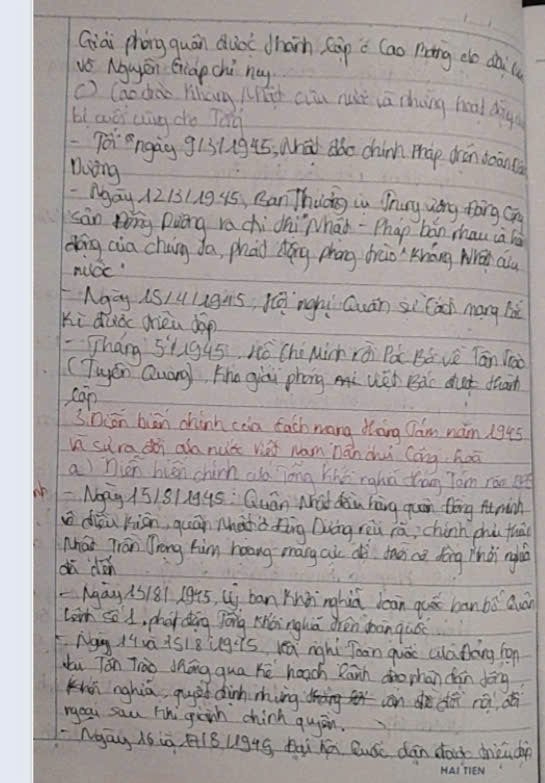 Giải phóng quân được thành lập ở Cao Bằng do đại
võ Nguyên Giáp chỉ huy
c) Cao trào kháng Nhật cứu nước và những hoạt động
bị cuối cùng cho Tổng
- Tối ngày 9/3/1945, Nhật đảo chính Pháp trên toàn
Dương
- Ngày 12/3/1945, Ban Thường vụ Trung ương Đảng Cộng
sản Đông Dương ra chỉ thị "Nhật - Pháp bắn nhau và
động của chúng ta, phát động phong trào "Kháng Nhật cứu
nước"
- Ngày 15/4/1945, Hội nghị Quân sự Cách mạng Bắc
Kì được triệu tập
- Tháng 5/1945, Hồ Chí Minh rời Pác Bó về Tân Trào
(Tuyên Quang), Khu giải phóng Việt Bắc được thành
lập
3. Diễn biến chính của Cách mạng tháng Tám năm 1945
và sự ra đời của nước Việt Nam Dân chủ Cộng hoà
a) Diễn biến chính của Tổng khởi nghĩa tháng Tám năm
- Ngày 15/8/1945: Quân Nhật đầu hàng quân Đồng minh
vô điều kiện, quân Nhật ở Đông Dương rệu rã, chính phủ thân
Nhật Trần Trọng Kim hoang mang cực độ thời cơ tổng khởi nghĩa
đã đến
- Ngày 13/8/1945, Uỷ ban Khởi nghĩa toàn quốc ban bố Quân
lệnh số 1, phát động Tổng khởi nghĩa trên toàn quốc
- Ngày 14 và 15/8/1945, Hội nghị Toàn quốc của Đảng họp
Tân Trào thông qua kế hoạch lãnh đạo
khởi nghĩa, quyết định những đối nội, đối
ngoại sau khi giành chính quyền.
- Ngày 16 và 17/8/1945, Đại hội Quốc dân được triệu tập
HẢI TIẾN